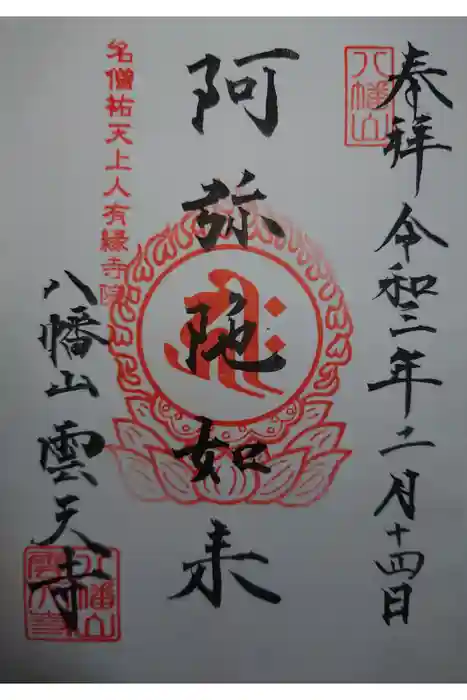 奉祥 令和三年二月十四日
八幡山
阿弥陀如来
名僧祐天上人有縁寺院
八幡山 雲天寺
八幡山
雲天寺